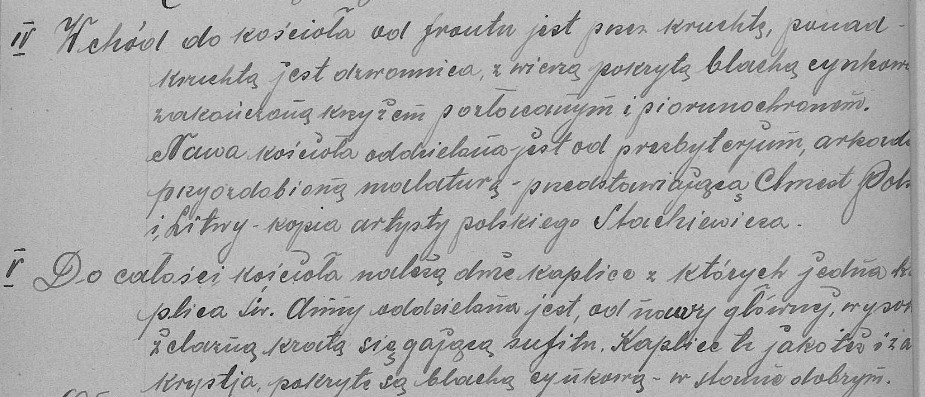 IV Wchód do kościoła od frontu jest przez kruchtę, ponad-
kruchtą jest dzwonnica, z wieżą pokrytą blachą cynkow
zakończoną krzyżem pozłacanym i piorunochronem.
Nawa kościoła oddzielana jest od prezbyterjum, arkad
przyozdobioną malaturą - przedstawiającą Chrzest Pols
i Litwy - kopia artysty polskiego Stachiewicza.
V Do całości kościoła należą dwie kaplice z których jedna k
plica św. Anny oddzielana jest, od nawy głównej, wysok
żelazną kratą sięgającą sufitu. Kaplice te jakoteż i za
krystja, pokryte są blachą cynkową - w stanie dobrym.